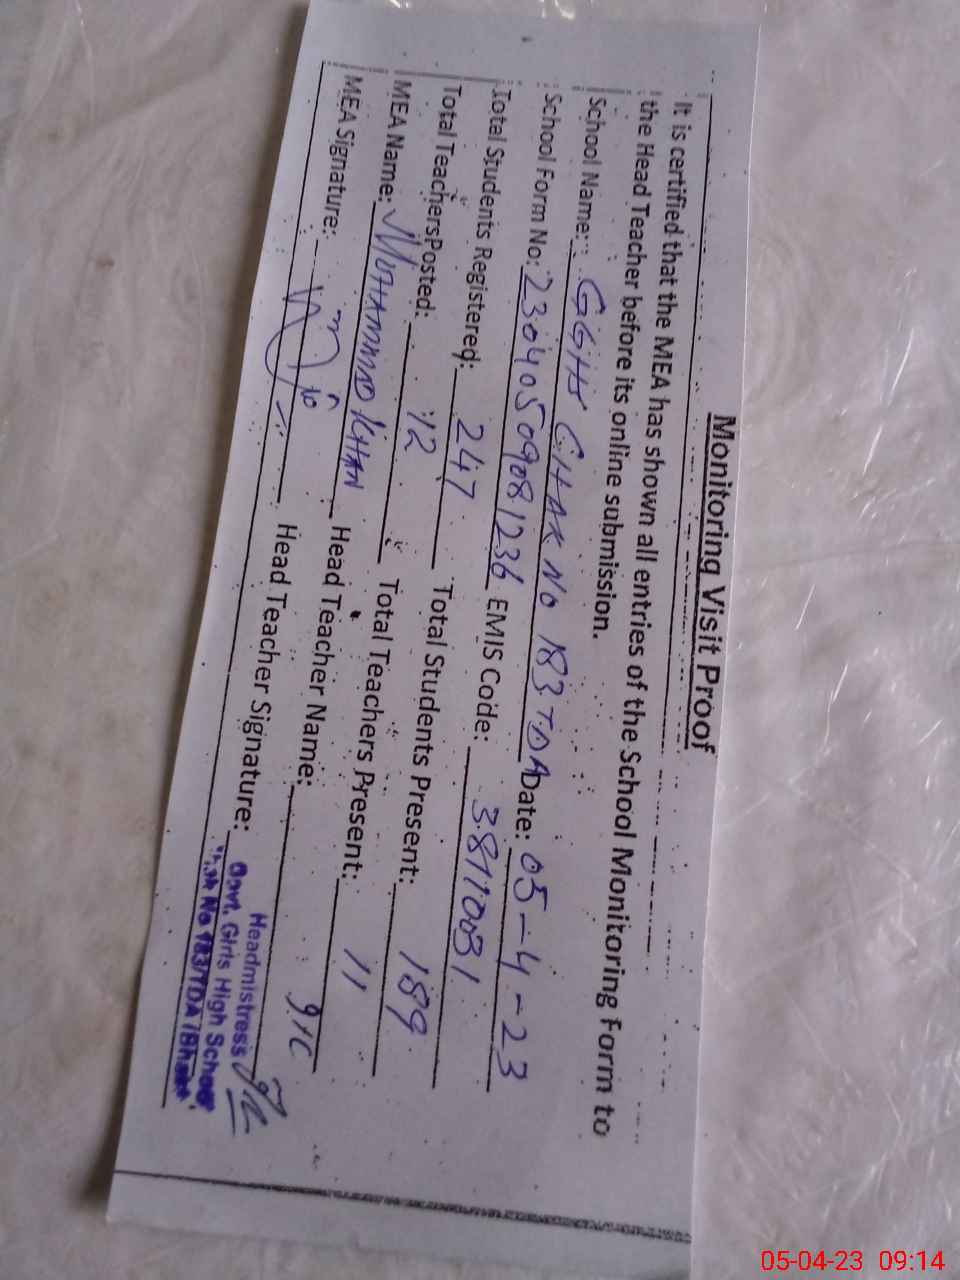 Monitoring Visit Proof
It is certified that the MEA has shown all entries of the School Monitoring Form to
the Head Teacher before its online submission.
School Name: GGHS CHAK NO 183 TDA Date: 05-4-23
School Form No: 23040509081236 EMIS Code: 38110031
Total Students Registered: 247 Total Students Present: 189
Total TeachersPosted: 12 Total Teachers Present: 11
MEA Name: MUHAMMAD KHAN Head Teacher Name:
MEA Signature: Head Teacher Signature:
Headmistress
Govt. Girls High School
Chak No 183/TDA
05-04-23 09:14